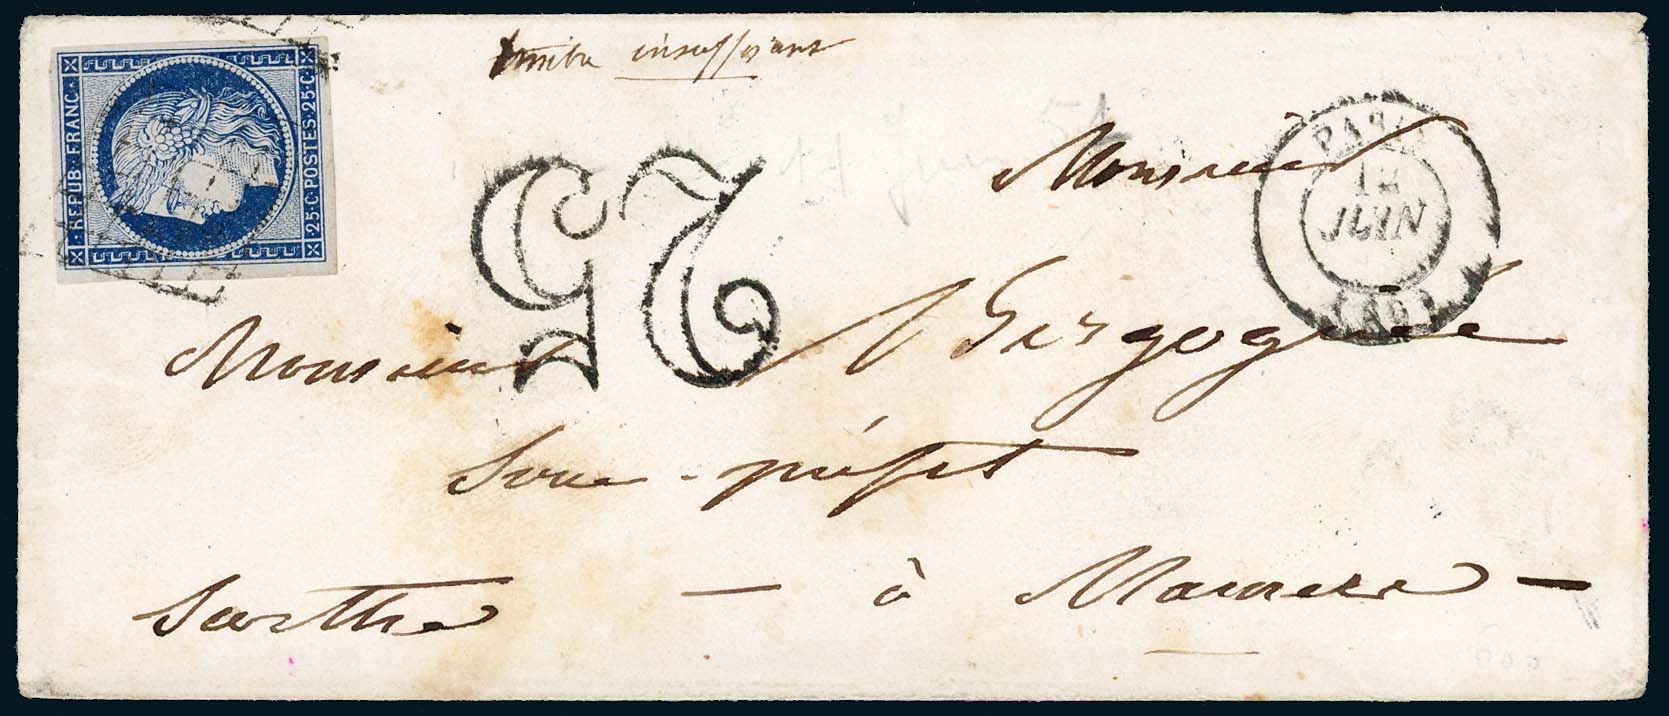 timbre insuffisant
REPUB. FRANC.
25.C. POSTES. 25.C.
25
PARIS
12
JUIN
(60)
Monsieur
Monsieur Bergognié
Sous-préfet
à Mamers
Sarthe